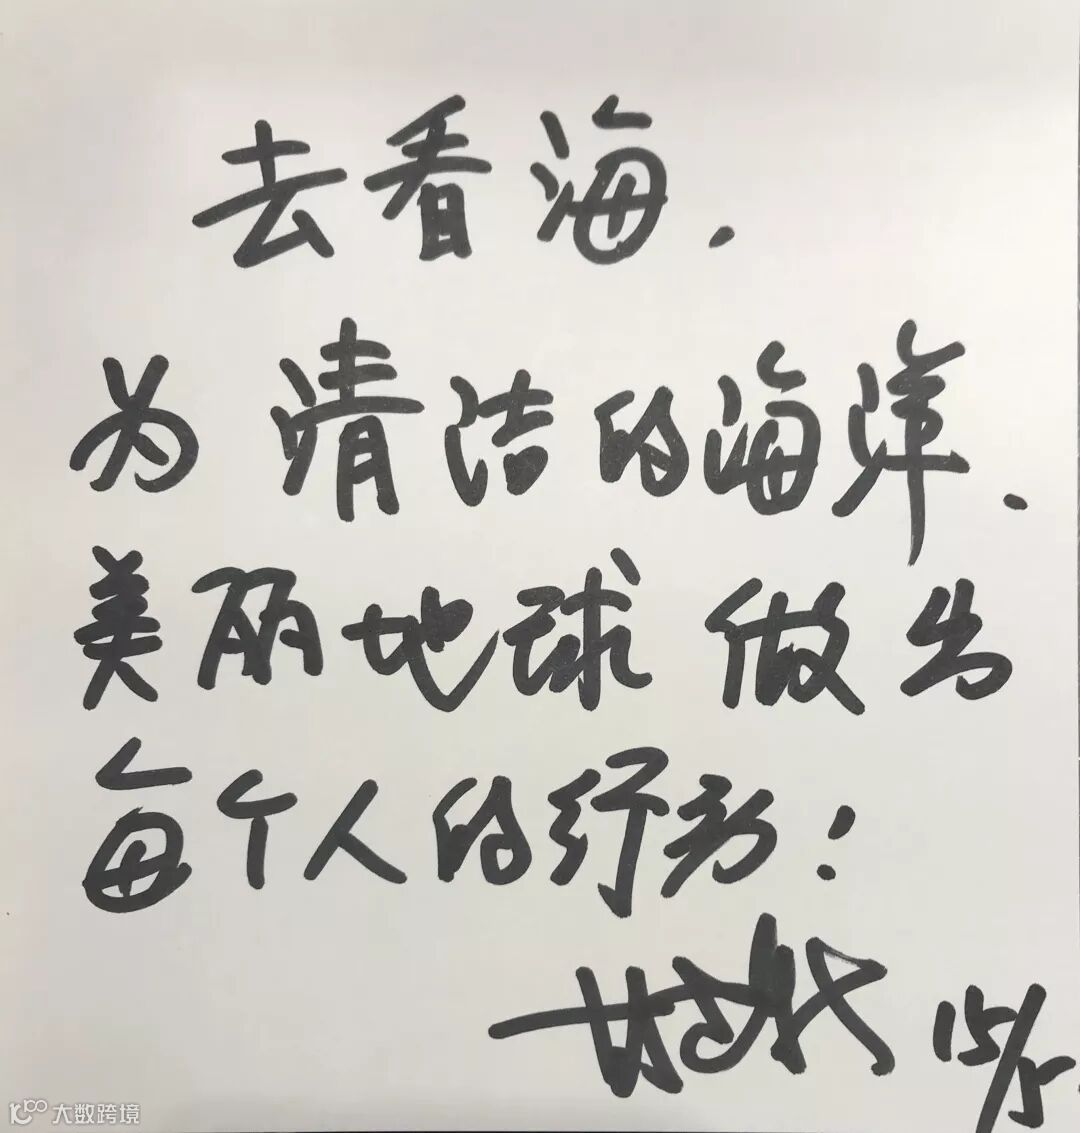 去看海.
为清洁的海洋.
美丽地球做出
每个人的行动!
15/5
大数跨境